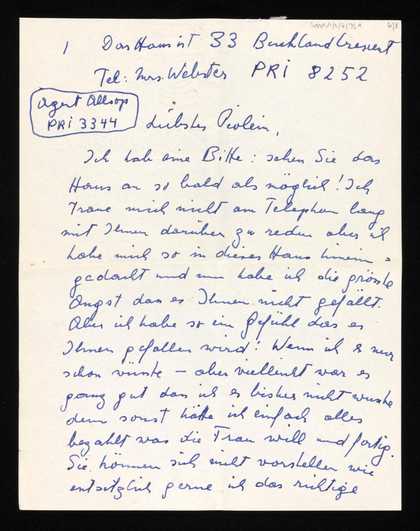 1 Das Haus ist 33 Buckland Crescent
Tel: Mrs. Webster PRI 8252
Agent Allsop
PRI 3344
Liebstes Piolein,
Ich hab eine Bitte: sehen Sie das
Haus an so bald als möglich! Ich
traue mich nicht am Telephon lang
mit Ihnen darüber zu reden aber ich
habe mich so in dieses Haus hinein =
gedacht und nun habe ich die grösste
Angst das es Ihnen nicht gefällt.
Aber ich habe so ein Gefühl das es
Ihnen gefallen wird! Wenn ich es nur
schon wüsste – aber vielleicht war es
ganz gut das ich es bisher nicht wusste
denn sonst hätte ich einfach alles
bezahlt was die Frau will und fertig.
Sie können sich nicht vorstellen wie
entsetzlich gerne ich das richtige